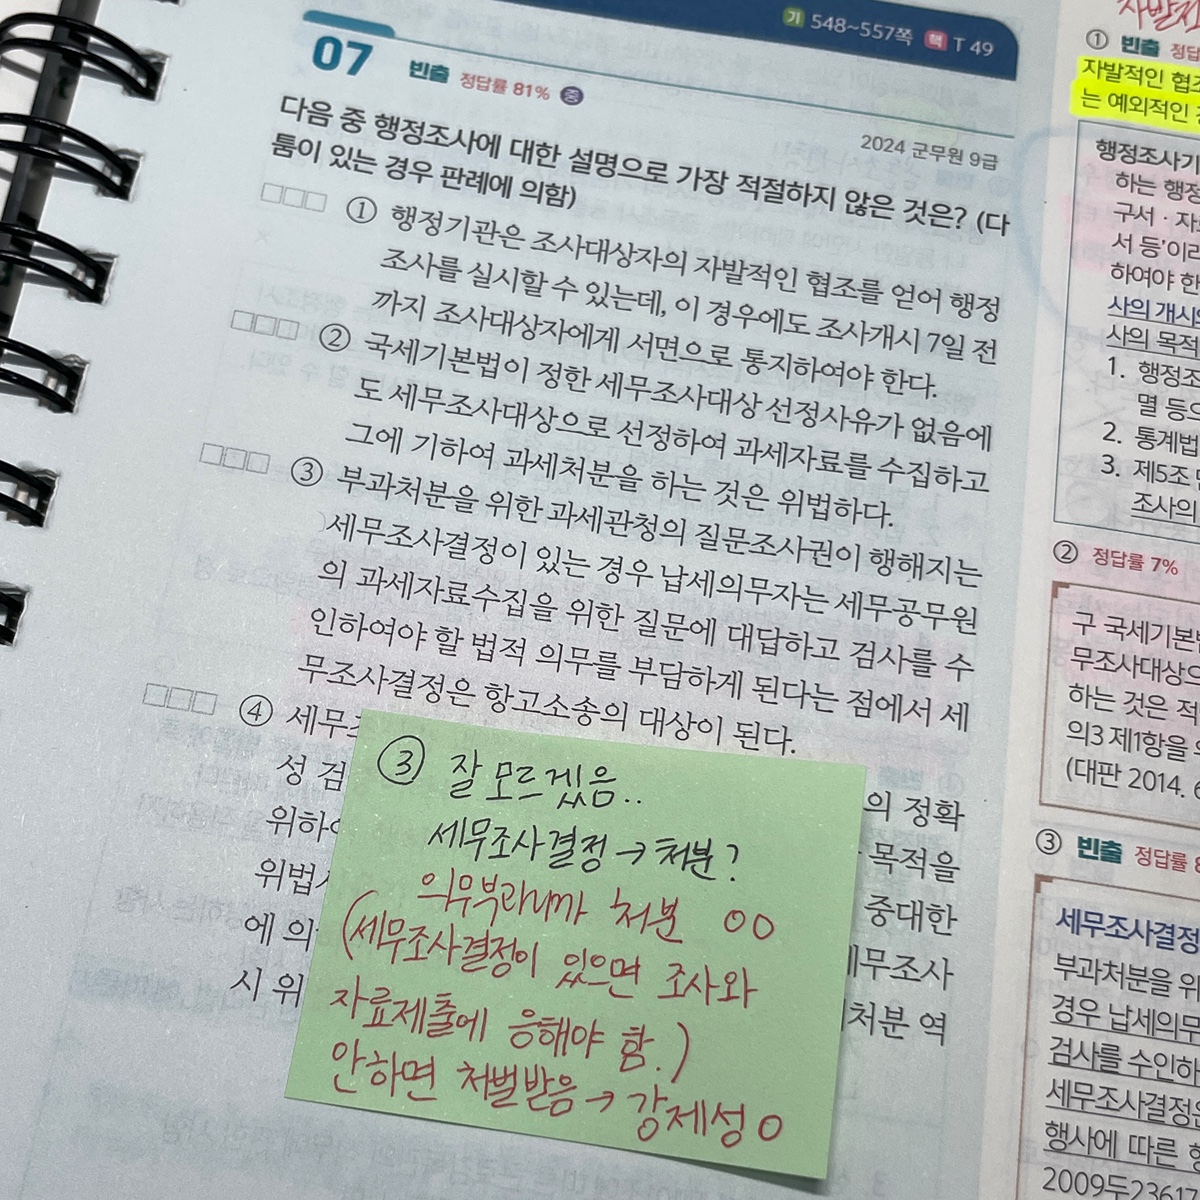 기 548~557쪽 핵 T 49
07 빈출 정답률 81% 중
2024 군무원 9급
다음 중 행정조사에 대한 설명으로 가장 적절하지 않은 것은? (다
툼이 있는 경우 판례에 의함)
① 행정기관은 조사대상자의 자발적인 협조를 얻어 행정
조사를 실시할 수 있는데, 이 경우에도 조사개시 7일 전
까지 조사대상자에게 서면으로 통지하여야 한다.
② 국세기본법이 정한 세무조사대상 선정사유가 없음에
도 세무조사대상으로 선정하여 과세자료를 수집하고
그에 기하여 과세처분을 하는 것은 위법하다.
③ 부과처분을 위한 과세관청의 질문조사권이 행해지는
세무조사결정이 있는 경우 납세의무자는 세무공무원
의 과세자료수집을 위한 질문에 대답하고 검사를 수
인하여야 할 법적 의무를 부담하게 된다는 점에서 세
무조사결정은 항고소송의 대상이 된다.
④ 세무
성 검 의 정확
위하 목적을
위법 중대한
에 의 세무조사
시 위 처분 역
③ 잘 모르겠음..
세무조사결정→처분?
의무부과니까 처분 ㅇㅇ
(세무조사결정이 있으면 조사와
자료제출에 응해야 함.)
안하면 처벌받음→강제성 O
① 빈출 정답
자발적인 협조
는 예외적인
행정조사기
하는 행정
구서·자
서 등'이라
하여야 한
사의 개시와
사의 목적
1. 행정조
멸 등으
2. 통계법
3. 제5조
조사의
② 정답률 7%
구 국세기본
무조사대상으
하는 것은 적
의3 제1항을 위
(대판 2014. 6
③ 빈출 정답률 8
세무조사결정
부과처분을 위
경우 납세의무
검사를 수인하
세무조사결정은
행사에 따른 항
2009두23617